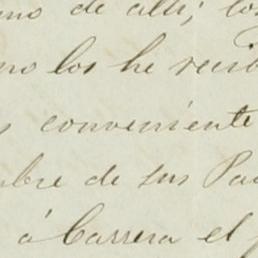 mo de alli; los
no los he recib
s conveniente
bre de sus Pa
á Carrera el